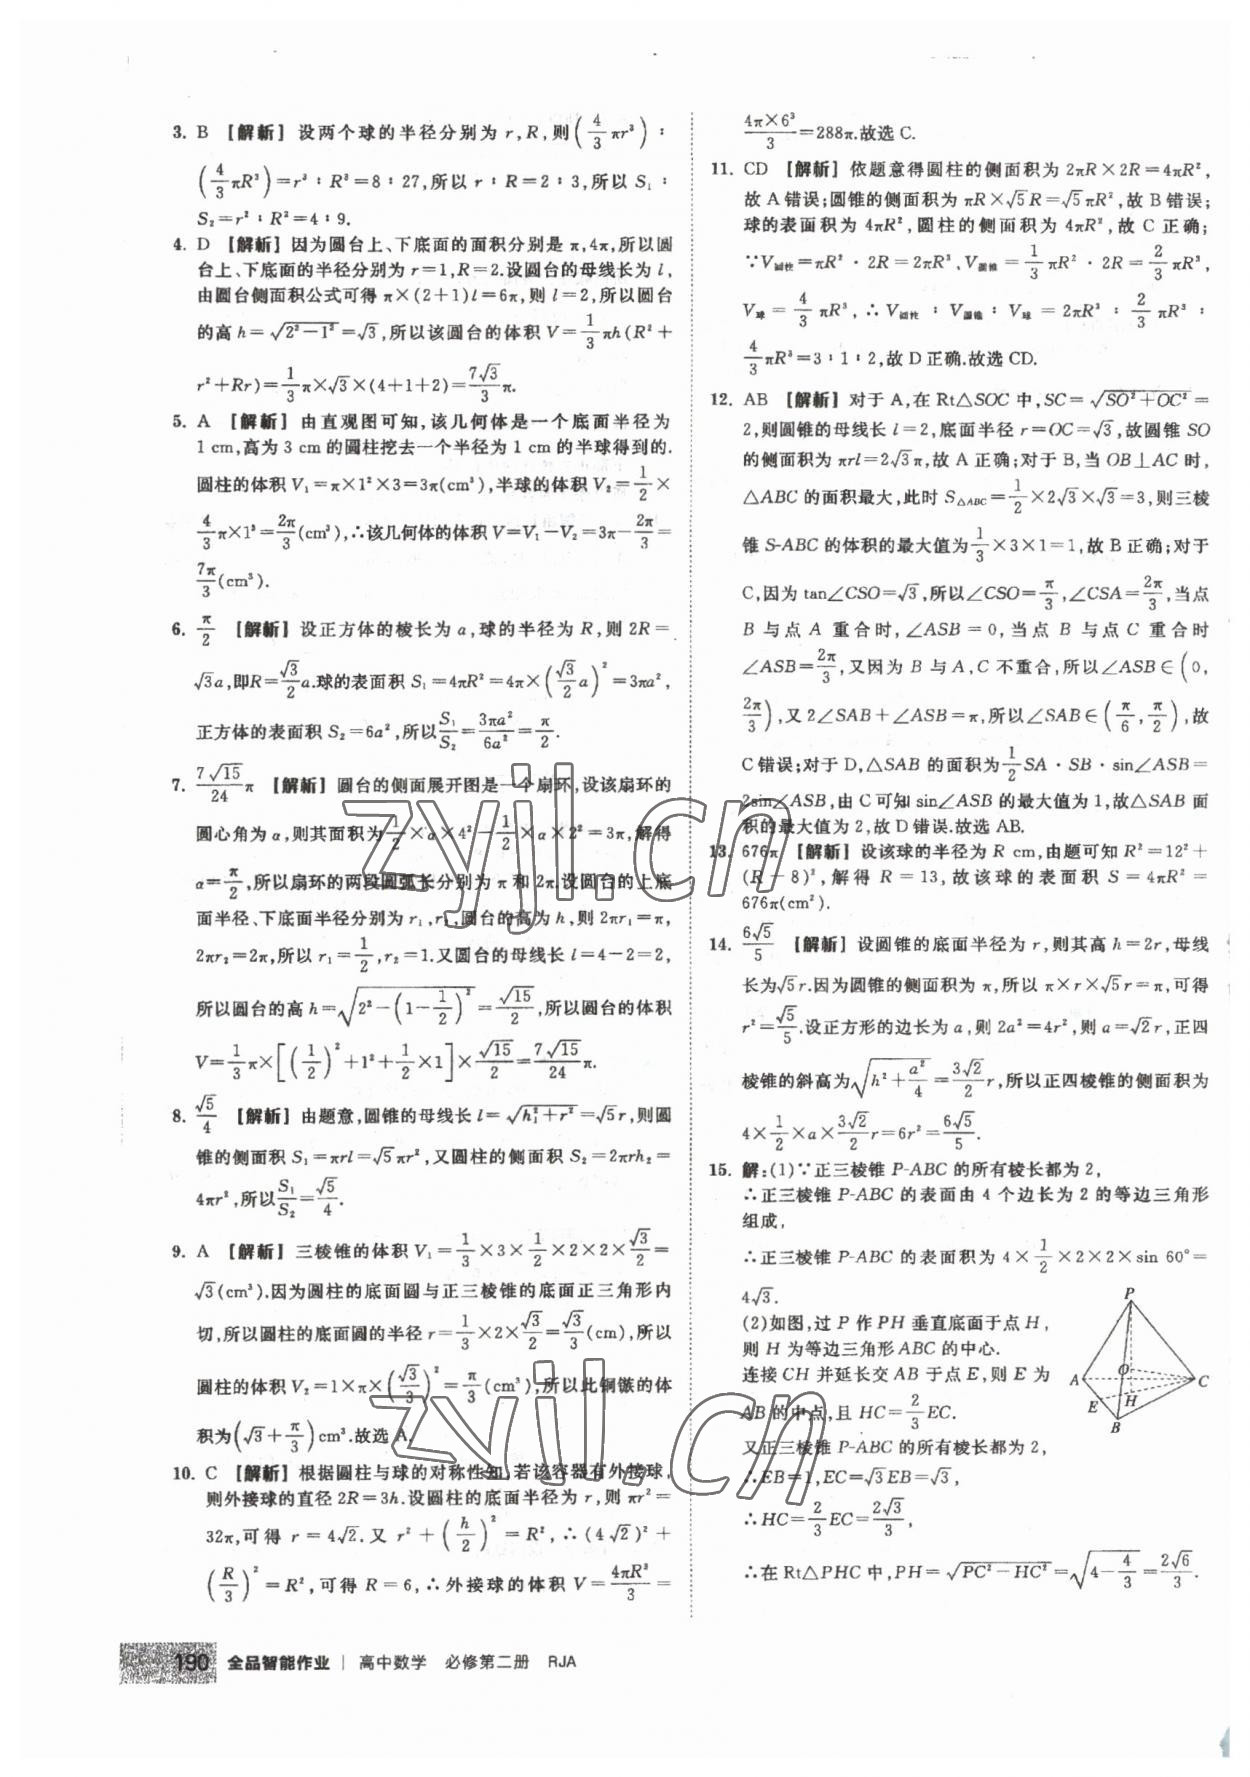 3. B 【解析】设两个球的半径分别为 r,R,则(4/3 πr³)∶
(4/3 πR³)=r³∶R³=8∶27,所以 r∶R=2∶3,所以 S₁∶
S₂=r²∶R²=4∶9.
4. D 【解析】因为圆台上、下底面的面积分别是 π,4π,所以圆
台上、下底面的半径分别为 r=1,R=2.设圆台的母线长为 l,
由圆台侧面积公式可得 π×(2+1)l=6π,则 l=2,所以圆台
的高 h=√(2²-1²)=√3,所以该圆台的体积 V=1/3 πh(R²+
r²+Rr)=1/3 π×√3×(4+1+2)=7√3/3 π.
5. A 【解析】由直观图可知,该几何体是一个底面半径为
1 cm,高为 3 cm 的圆柱挖去一个半径为 1 cm 的半球得到的.
圆柱的体积 V₁=π×1²×3=3π(cm³),半球的体积 V₂=1/2×
4/3 π×1³=2π/3(cm³),∴该几何体的体积 V=V₁-V₂=3π-2π/3=
7π/3(cm³).
6. π/2 【解析】设正方体的棱长为 a,球的半径为 R,则 2R=
√3a,即R=√3/2 a.球的表面积 S₁=4πR²=4π×(√3/2 a)²=3πa²,
正方体的表面积 S₂=6a²,所以S₁/S₂=3πa²/6a²=π/2.
7. 7√15/24 π 【解析】圆台的侧面展开图是一个扇环,设该扇环的
圆心角为 α,则其面积为1/2×α×4²-1/2×α×2²=3π,解得
α=π/2,所以扇环的两段圆弧长分别为 π 和 2π.设圆台的上底
面半径、下底面半径分别为 r₁,r₂,圆台的高为 h,则 2πr₁=π,
2πr₂=2π,所以 r₁=1/2,r₂=1.又圆台的母线长 l=4-2=2,
所以圆台的高 h=√(2²-(1-1/2)²)=√15/2,所以圆台的体积
V=1/3 π×[(1/2)²+1²+1/2×1]×√15/2=7√15/24 π.
8. √5/4 【解析】由题意,圆锥的母线长 l=√(h₁²+r²)=√5r,则圆
锥的侧面积 S₁=πrl=√5πr²,又圆柱的侧面积 S₂=2πrh₂=
4πr²,所以S₁/S₂=√5/4.
9. A 【解析】三棱锥的体积 V₁=1/3×3×1/2×2×2×√3/2=
√3(cm³).因为圆柱的底面圆与正三棱锥的底面正三角形内
切,所以圆柱的底面圆的半径 r=1/3×2×√3/2=√3/3(cm),所以
圆柱的体积 V₂=1×π×(√3/3)²=π/3(cm³),所以此铜镞的体
积为(√3+π/3)cm³.故选 A.
10. C 【解析】根据圆柱与球的对称性知,若该容器有外接球,
则外接球的直径 2R=3h.设圆柱的底面半径为 r,则 πr²=
32π,可得 r=4√2.又 r²+(h/2)²=R²,∴(4√2)²+
(R/3)²=R²,可得 R=6,∴外接球的体积 V=4πR³/3=
4π×6³/3=288π.故选 C.
11. CD 【解析】依题意得圆柱的侧面积为 2πR×2R=4πR²,
故 A 错误;圆锥的侧面积为 πR×√5R=√5πR²,故 B 错误;
球的表面积为 4πR²,圆柱的侧面积为 4πR²,故 C 正确;
∵V圆柱=πR²·2R=2πR³,V圆锥=1/3 πR²·2R=2/3 πR³,
V球=4/3 πR³,∴V圆柱∶V圆锥∶V球=2πR³∶2/3 πR³∶
4/3 πR³=3∶1∶2,故 D 正确.故选 CD.
12. AB 【解析】对于 A,在 Rt△SOC 中,SC=√(SO²+OC²)=
2,则圆锥的母线长 l=2,底面半径 r=OC=√3,故圆锥 SO
的侧面积为 πrl=2√3π,故 A 正确;对于 B,当 OB⊥AC 时,
△ABC 的面积最大,此时 S△ABC=1/2×2√3×√3=3,则三棱
锥 S-ABC 的体积的最大值为1/3×3×1=1,故 B 正确;对于
C,因为 tan∠CSO=√3,所以∠CSO=π/3,∠CSA=2π/3,当点
B 与点 A 重合时,∠ASB=0,当点 B 与点 C 重合时
∠ASB=2π/3,又因为 B 与 A,C 不重合,所以∠ASB∈(0,
2π/3),又 2∠SAB+∠ASB=π,所以∠SAB∈(π/6,π/2),故
C 错误;对于 D,△SAB 的面积为1/2 SA·SB·sin∠ASB=
2sin∠ASB,由 C 可知 sin∠ASB 的最大值为 1,故△SAB 面
积的最大值为 2,故 D 错误.故选 AB.
13. 676π 【解析】设该球的半径为 R cm,由题可知 R²=12²+
(R-8)²,解得 R=13,故该球的表面积 S=4πR²=
676π(cm²).
14. 6√5/5 【解析】设圆锥的底面半径为 r,则其高 h=2r,母线
长为√5r.因为圆锥的侧面积为 π,所以 π×r×√5r=π,可得
r²=√5/5.设正方形的边长为 a,则 2a²=4r²,则 a=√2r,正四
棱锥的斜高为√(h²+a²/4)=3√2/2 r,所以正四棱锥的侧面积为
4×1/2×a×3√2/2 r=6r²=6√5/5.
15. 解:(1)∵正三棱锥 P-ABC 的所有棱长都为 2,
∴正三棱锥 P-ABC 的表面由 4 个边长为 2 的等边三角形
组成,
∴正三棱锥 P-ABC 的表面积为 4×1/2×2×2×sin 60°=
4√3.
(2)如图,过 P 作 PH 垂直底面于点 H,
则 H 为等边三角形 ABC 的中心.
连接 CH 并延长交 AB 于点 E,则 E 为
AB 的中点,且 HC=2/3 EC.
又正三棱锥 P-ABC 的所有棱长都为 2,
∴EB=1,EC=√3EB=√3,
∴HC=2/3 EC=2√3/3,
∴在 Rt△PHC 中,PH=√(PC²-HC²)=√(4-4/3)=2√6/3.
P
O
A
C
E
H
B
zyjl.cn
zyjl.cn
190 全品智能作业 | 高中数学 必修第二册 RJA